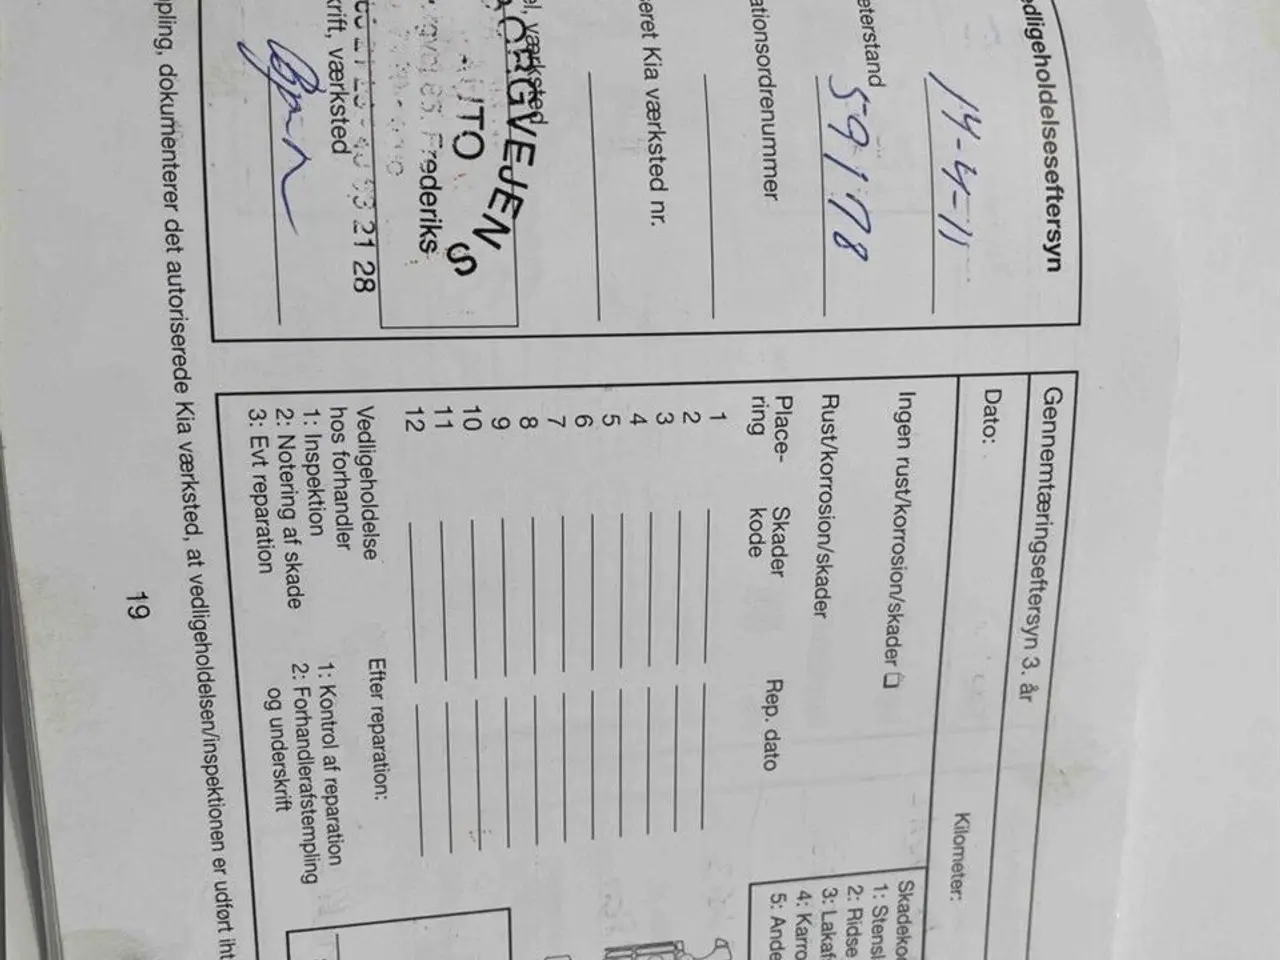 edligeholdelseseftersyn
14-4-11
eterstand
59178
ationsordrenummer
eret Kia værksted nr.
el, værksted
BORGVEJENS
UTO
Frederiks
93 21 28
krift, værksted
Gennemtæringseftersyn 3. år
Dato:
Kilometer:
Ingen rust/korrosion/skader
Rust/korrosion/skader
Place-
ring
Skader
kode
Rep. dato
1
2
3
4
5
6
7
8
9
10
11
12
Vedligeholdelse
hos forhandler
1: Inspektion
2: Notering af skade
3: Evt reparation
Efter reparation:
1: Kontrol af reparation
2: Forhandlerafstempling
og underskrift
Skadeko
1: Stensl
2: Ridse
3: Lakaf
4: Karro
5: Ande
pling, dokumenterer det autoriserede Kia værksted, at vedligeholdelsen/inspektionen er udført iht
19